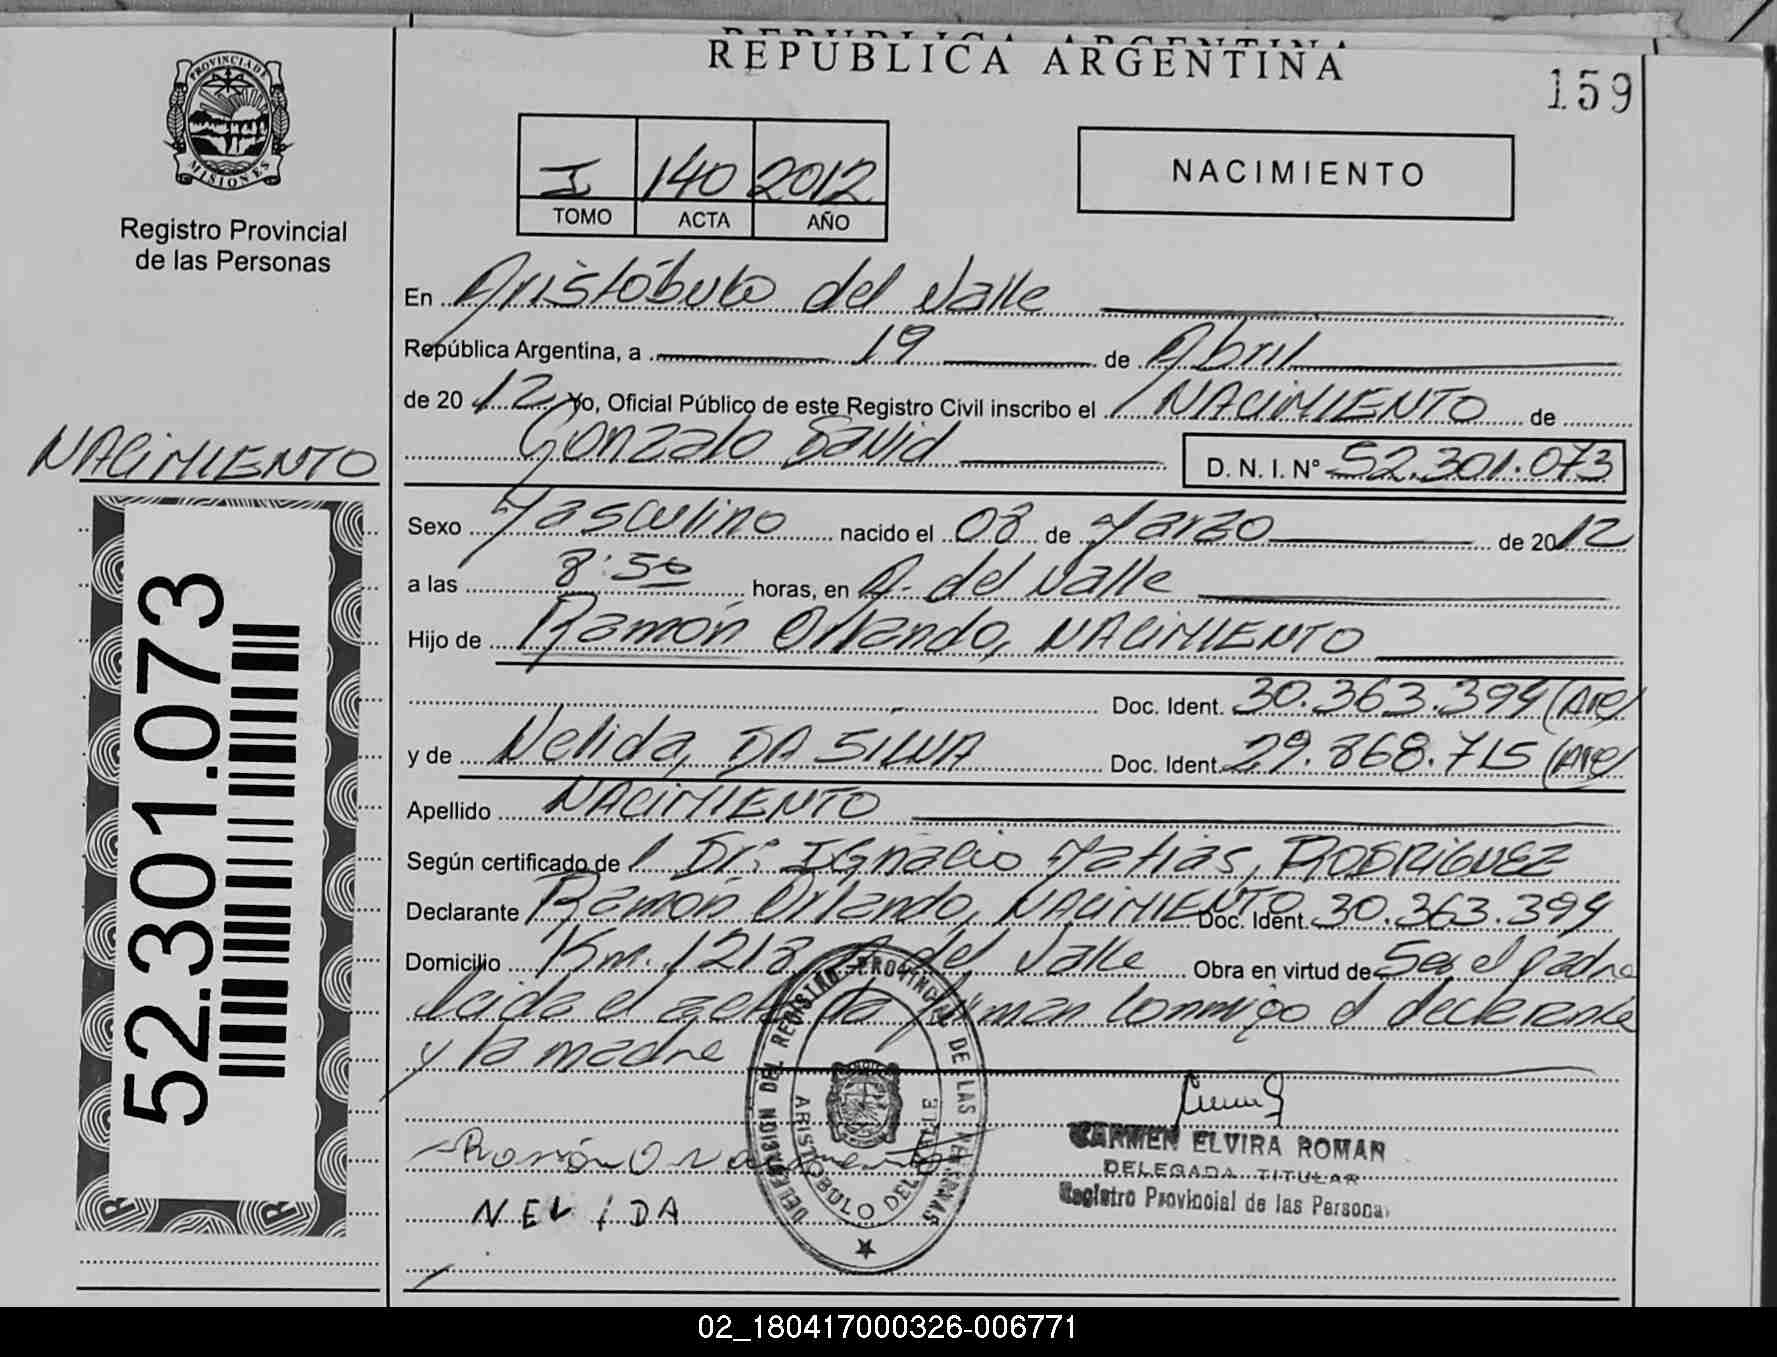 REPUBLICA ARGENTINA
159
PROVINCIA DE MISIONES
Registro Provincial
de las Personas
I 140 2012
TOMO ACTA AÑO
NACIMIENTO
En Aristóbulo del Valle
República Argentina, a 19 de Abril
de 2012 Yo, Oficial Público de este Registro Civil inscribo el NACIMIENTO de
Gonzalo David D. N. I. N° 52.301.073
NACIMIENTO
Sexo Masculino nacido el 08 de Marzo de 2012
a las 8:50 horas, en A. del Valle
Hijo de Ramón Orlando, NACIMIENTO
Doc. Ident. 30.363.394 (Arg)
y de Nelida, DA SILVA Doc. Ident. 29.868.715 (Arg)
Apellido NACIMIENTO
Según certificado de Dr: Ignacio Matías, RODRIGUEZ
Declarante Ramón Orlando, NACIMIENTO Doc. Ident. 30.363.394
Domicilio Km. 1213 A. del Valle Obra en virtud de Ser el padre
Leida el acta la firman conmigo el declarante
y la madre
52.301.073
DELEGACION DEL REGISTRO PROVINCIAL DE LAS PERSONAS
ARISTOBULO DEL VALLE
CARMEN ELVIRA ROMAN
DELEGADA TITULAR
Registro Provincial de las Personas
Ramón O Nacimiento
NELIDA
02_180417000326-006771